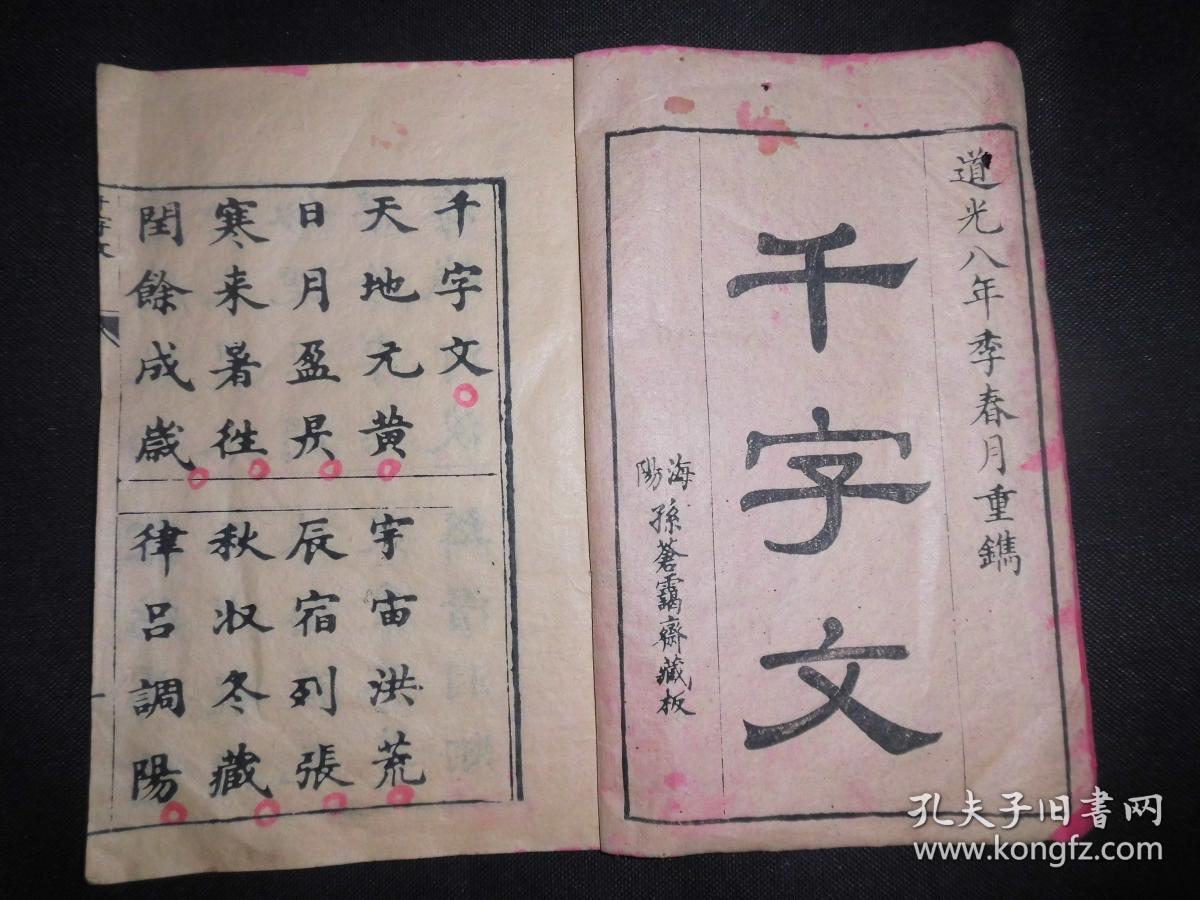 道光八年季春月重鐫
千字文
海陽孫蒼靄齋藏板
千字文
天地元黃
宇宙洪荒
日月盈昃
辰宿列張
寒来暑徃
秋收冬藏
閏餘成歲
律呂調陽
千字文
孔夫子旧书网
www.kongfz.com